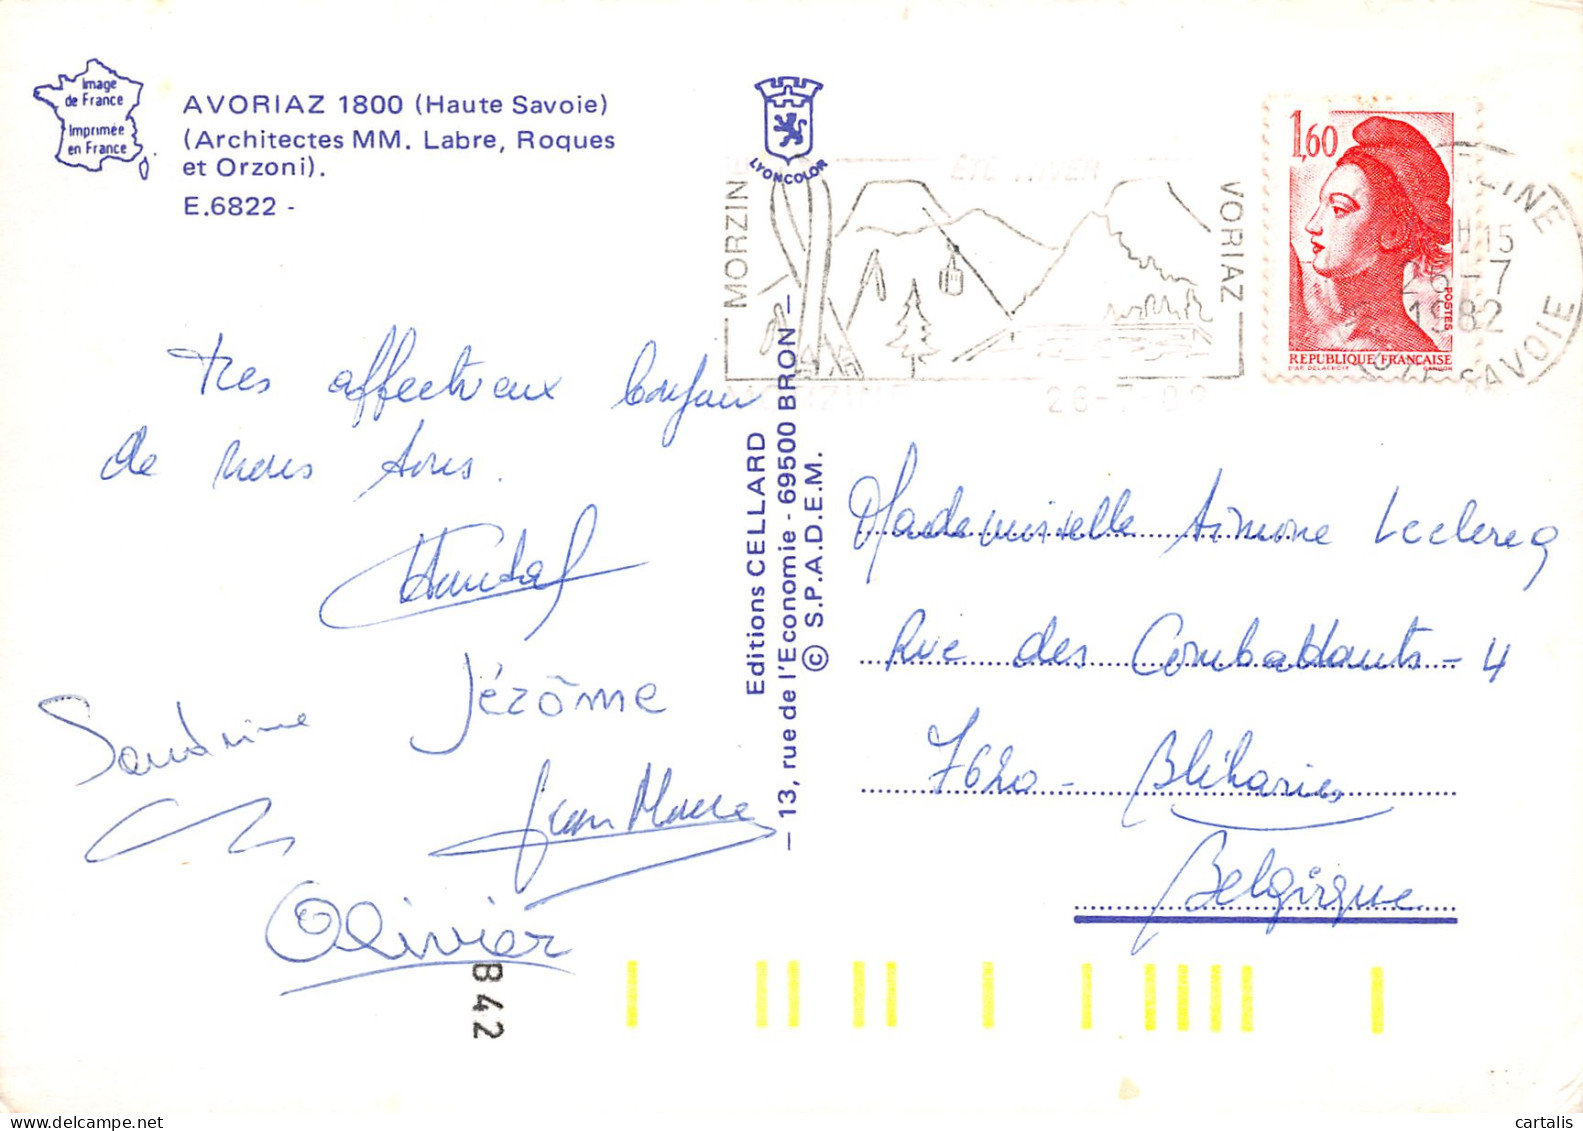 Image
de France
Imprimée
en France
AVORIAZ 1800 (Haute Savoie)
(Architectes MM. Labre, Roques
et Orzoni).
E.6822 -
LYONCOLOR
ÉTÉ HIVER
MORZIN
VORIAZ
26-7-82
1,60
POSTES
RÉPUBLIQUE FRANÇAISE
D'AP. DELACROIX GANDON
ZINE
H 15
26-7
1982
HTE SAVOIE
très affectueux bonjour
de nous tous.
Jérôme
Sandrine
Jean Marie
Olivier
Editions CELLARD
— 13, rue de l'Economie - 69500 BRON —
© S.P.A.D.E.M.
Mademoiselle Simone Leclercq
Rue des Combattants - 4
7620 - Bléharies
Belgique
B42
cartalis